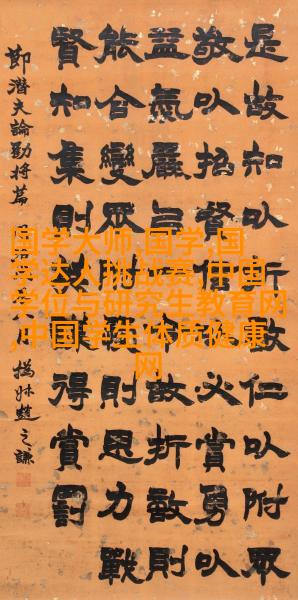 是故知㕥敵仁㕥附眾
敬㕥招賢信㕥必賞勇㕥
益氣嚴㕥令故折敵則
能合變眾附則思力戰
賢知集則謀得賞罰
節潛夫論勸將篇
撝叔趙之謙
国学大师,国学,国
学达人挑战赛,中国
学位与研究生教育网
,中国学生体质健康
网